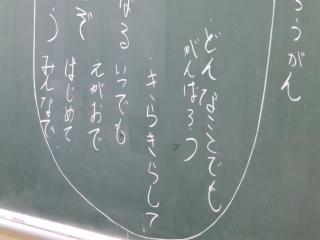 うがん
・どんなことでも
がんばろう
・きらきらして
なる いつでも
えがおで
ぞ はじめて
う みんなで